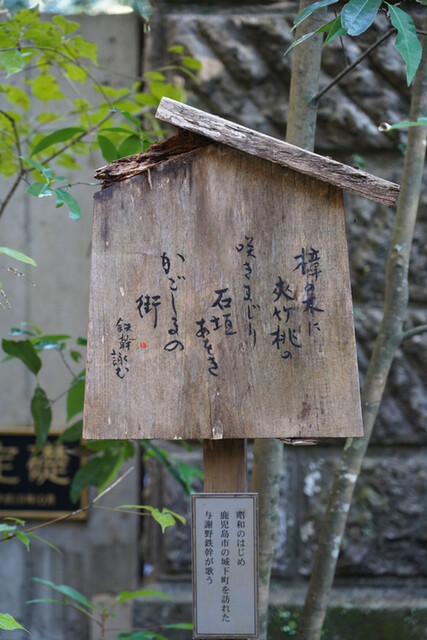 樟の木に
夾竹桃の
咲きまじり
石垣
あをき
かごしまの
街
鉄幹詠む
昭和のはじめ
鹿児島市の城下町を訪れた
与謝野鉄幹が歌う
定礎